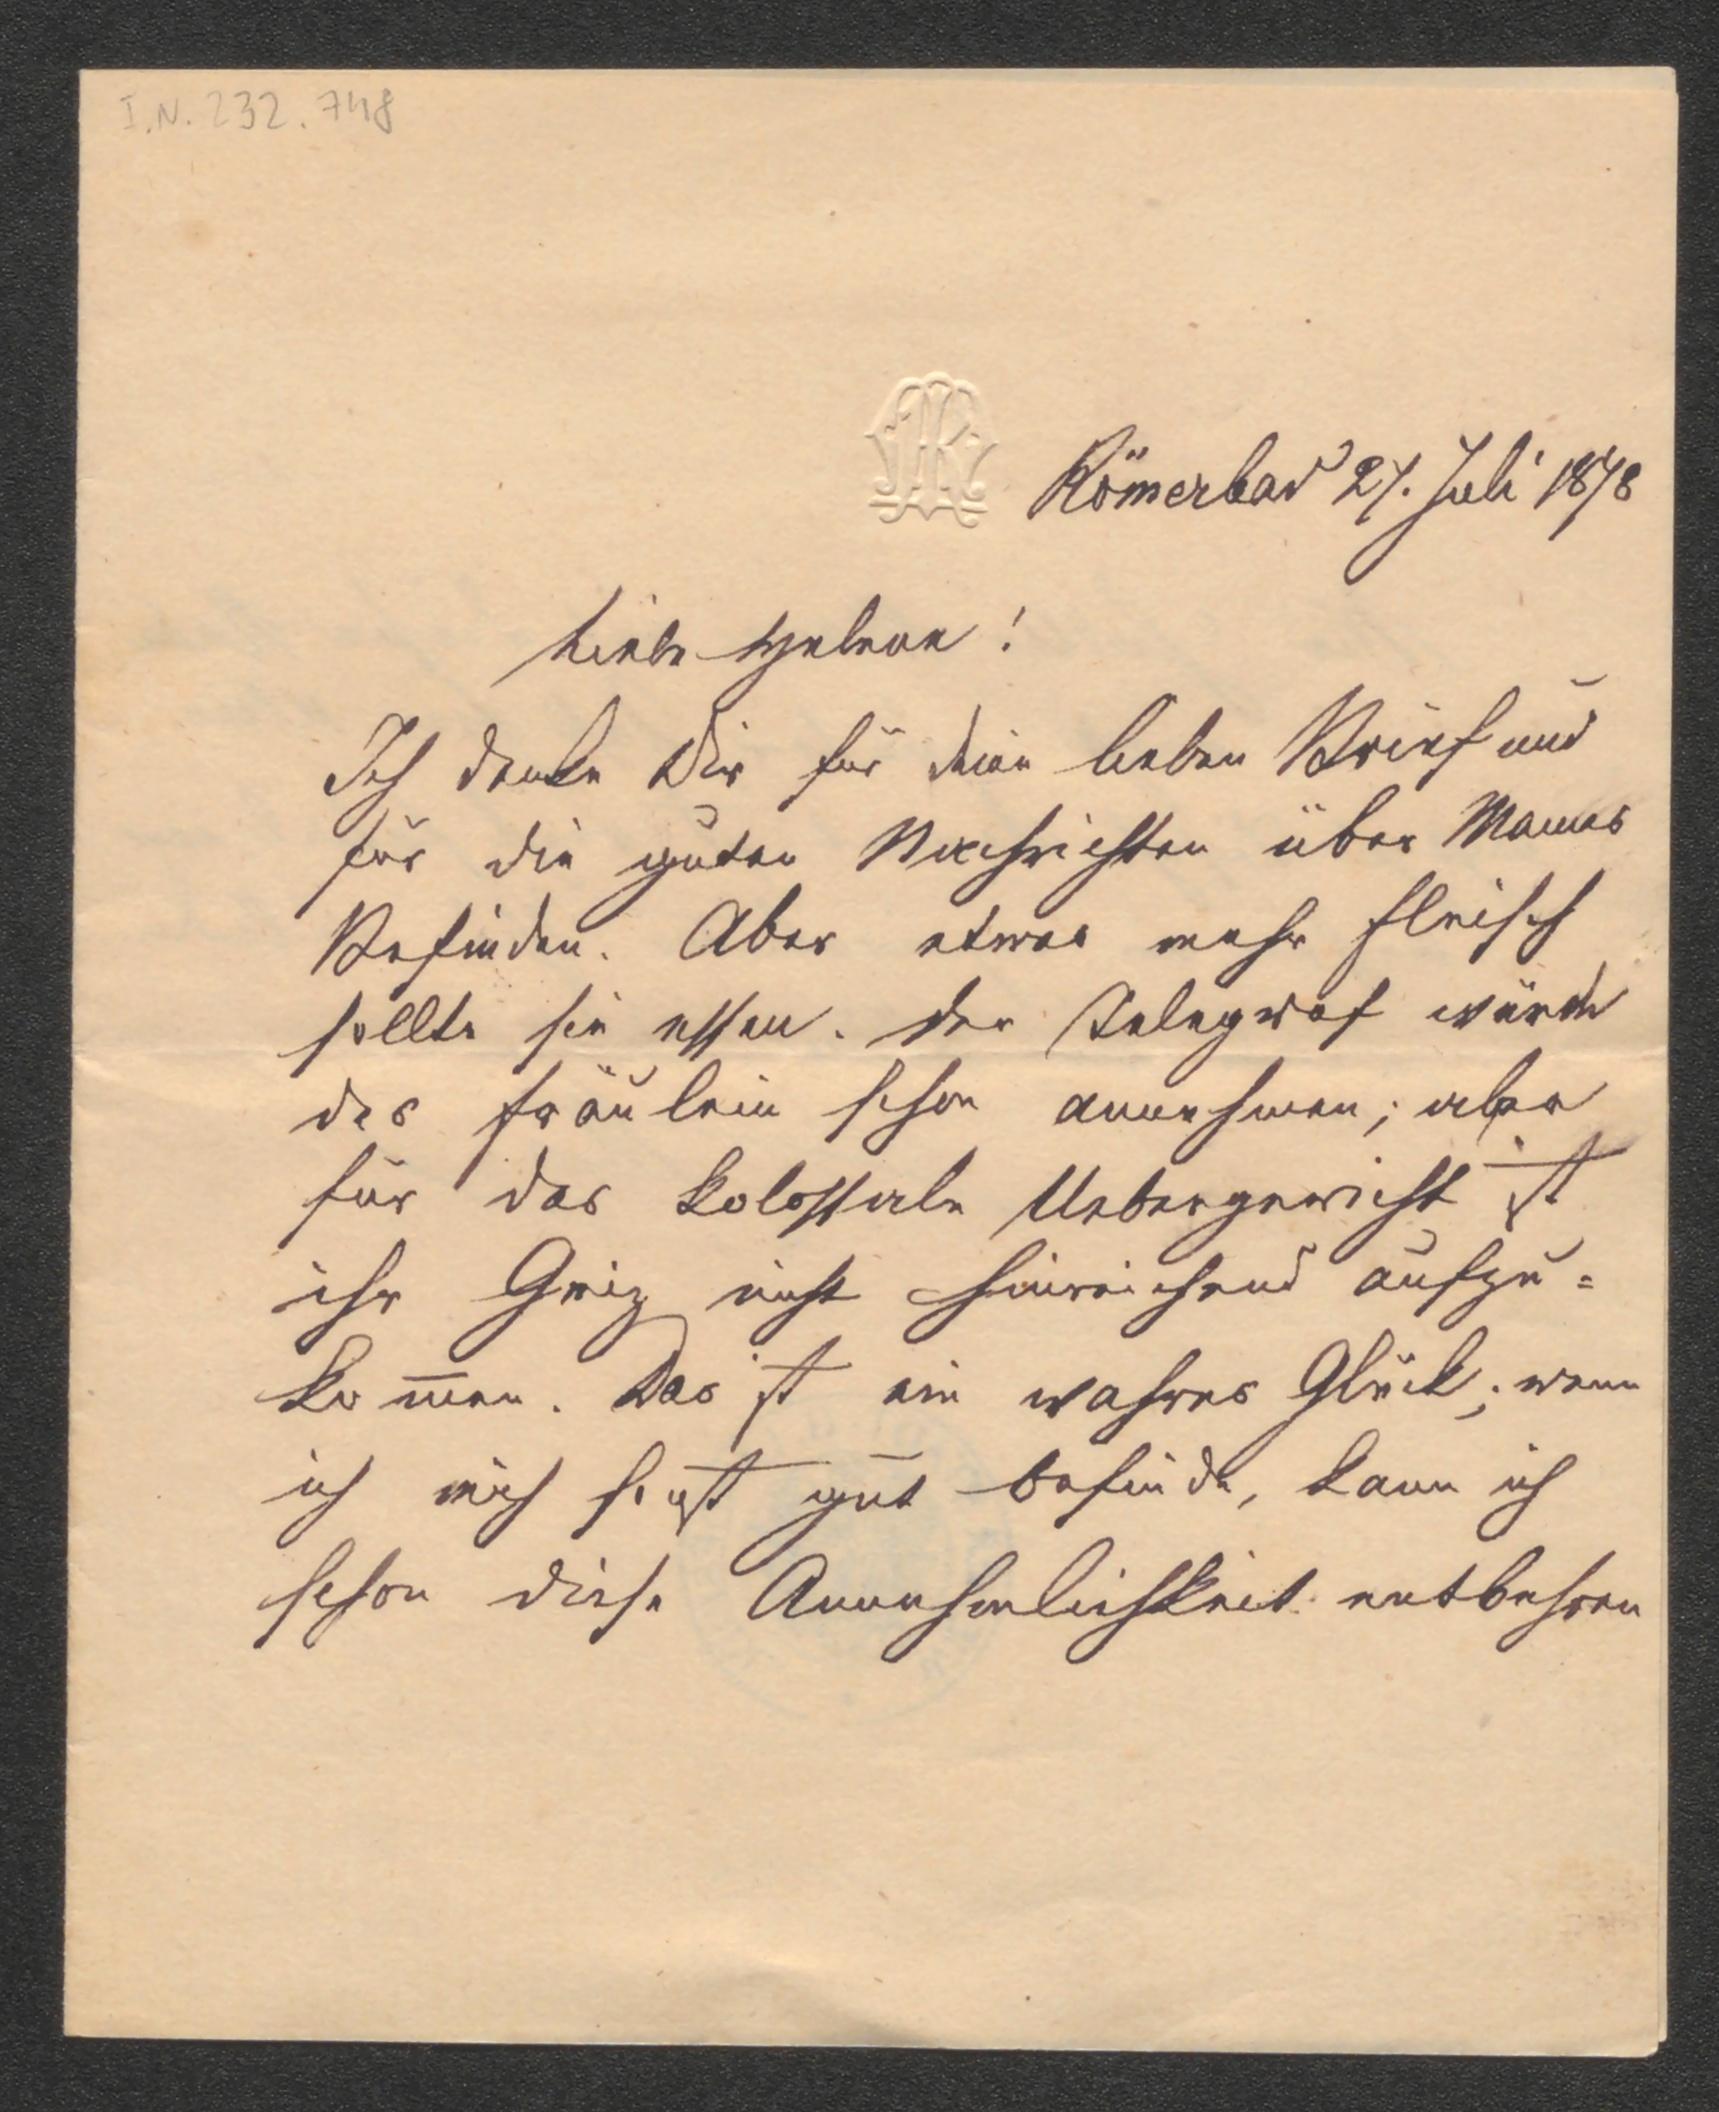 I.N. 232.748
Römerbad 27. Juli 1878
Liebe Helene!
Ich danke Dir für deinen lieben Brief und
für die guten Nachrichten über Mamas
Befinden. Aber etwas mehr Fleisch
sollte sie essen. Der Telegraf würde
das Fräulein schon annehmen; aber
für das kolossale Uebergewicht ist
ihr Geiz nicht hinreichend aufzu=
kom̅en. Das ist ein wahres Glück; wenn
ich mich sonst gut befinde, kann ich
schon diese Annehmlichkeit entbehren